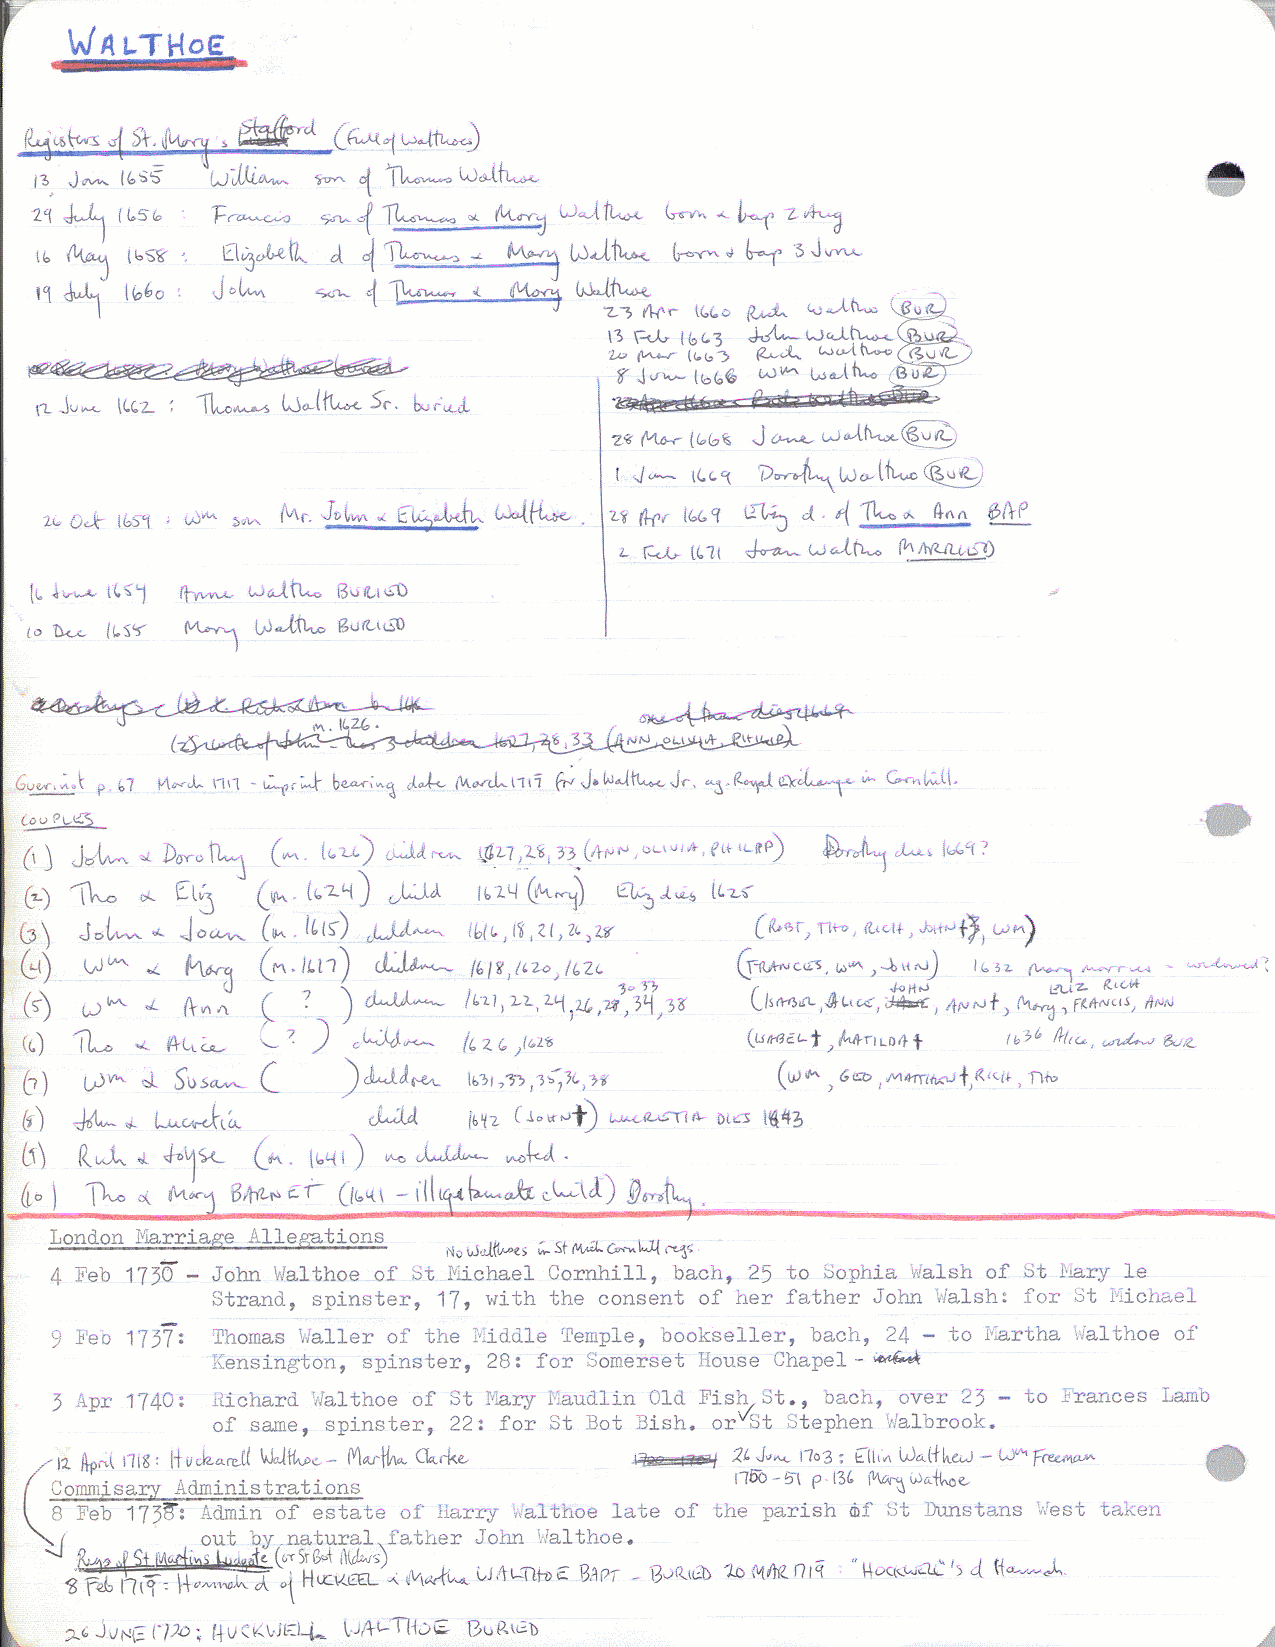 WALTHOE
Registers of St. Mary's Stafford (Full of Walthoes)
13 Jan 1655 William son of Thomas Walthoe
29 July 1656 : Francis son of Thomas & Mary Walthoe born & bap 2 Aug
16 May 1658 : Elizabeth d of Thomas & Mary Walthoe born & bap 3 June
19 July 1660 : John son of Thomas & Mary Walthoe
23 Apr 1660 Rich Waltho BUR
13 Feb 1663 John Walthoe BUR
20 Mar 1663 Rich Walthoo BUR
8 June 1666 Wm Waltho BUR
12 June 1662 : Thomas Walthoe Sr. buried
28 Mar 1668 Jane Walthoe BUR
1 Jan 1669 Dorothy Walthoo BUR
26 Oct 1659 : Wm son Mr. John & Elizabeth Walthoe.
28 Apr 1669 Eliz d. of Tho & Ann BAP
2 Feb 1671 Joan Waltho MARRIED
16 June 1654 Anne Waltho BURIED
10 Dec 1655 Mary Waltho BURIED
one of them dies 1669
m. 1626.
(2) wife of John - has 3 children 1627, 28, 33 (ANN, OLIVIA, PHILIP)
Guerinot p. 67 March 1717 - imprint bearing date March 1717 for Jo Walthoe Jr. ag. Royal Exchange in Cornhill.
COUPLES
(1) John & Dorothy (m. 1626) children 1627, 28, 33 (ANN, OLIVIA, PHILIPP) Dorothy dies 1669?
(2) Tho & Eliz (m. 1624) child 1624 (Mary) Eliz dies 1625
(3) John & Joan (m. 1615) children 1616, 18, 21, 26, 28 (ROBT, THO, RICH, JOHN†, WM)
(4) Wm & Marg (m. 1617) children 1618, 1620, 1626 (FRANCES, WM, JOHN) 1632 Marg marries - widowed?
30 33 JOHN ELIZ RICH
(5) Wm & Ann ( ? ) children 1621, 22, 24, 26, 28, 34, 38 (ISABEL, ALICE, JANE, ANN†, Mary, FRANCIS, ANN
(6) Tho & Alice ( ? ) children 1626, 1628 (ISABEL†, MATILDA† 1636 Alice, widow BUR
(7) Wm & Susan ( ) children 1631, 33, 35, 36, 38 (WM, GEO, MATTHEW†, RICH, THO
(8) John & Lucretia child 1642 (JOHN†) LUCRETIA DIES 1643
(9) Rich & Joyse (m. 1641) no children noted.
(10) Tho & Mary BARNET (1641 - illigetamate child) Dorothy.
London Marriage Allegations
No Walthoes in St Mich Cornhill regs.
4 Feb 1730 - John Walthoe of St Michael Cornhill, bach, 25 to Sophia Walsh of St Mary le
Strand, spinster, 17, with the consent of her father John Walsh: for St Michael
9 Feb 1737: Thomas Waller of the Middle Temple, bookseller, bach, 24 - to Martha Walthoe of
Kensington, spinster, 28: for Somerset House Chapel -
3 Apr 1740: Richard Walthoe of St Mary Maudlin Old Fish St., bach, over 23 - to Frances Lamb
of same, spinster, 22: for St Bot Bish. or St Stephen Walbrook.
12 April 1718: Huckarell Walthoe - Martha Clarke
1700-1704 26 June 1703: Ellin Walthew - Wm Freeman
1700-51 p. 136 Mary Wathoe
Commisary Administrations
8 Feb 1738: Admin of estate of Harry Walthoe late of the parish of St Dunstans West taken
out by natural father John Walthoe.
Regs of St Martins Ludgate (or St Bot Alders)
8 Feb 1719: Hannah d of HUCKEEL & Martha WALTHOE BAPT - BURIED 20 MAR 1719 : "HOCKWELL"'s d Hannah.
26 JUNE 1720; HUCKWELL WALTHOE BURIED